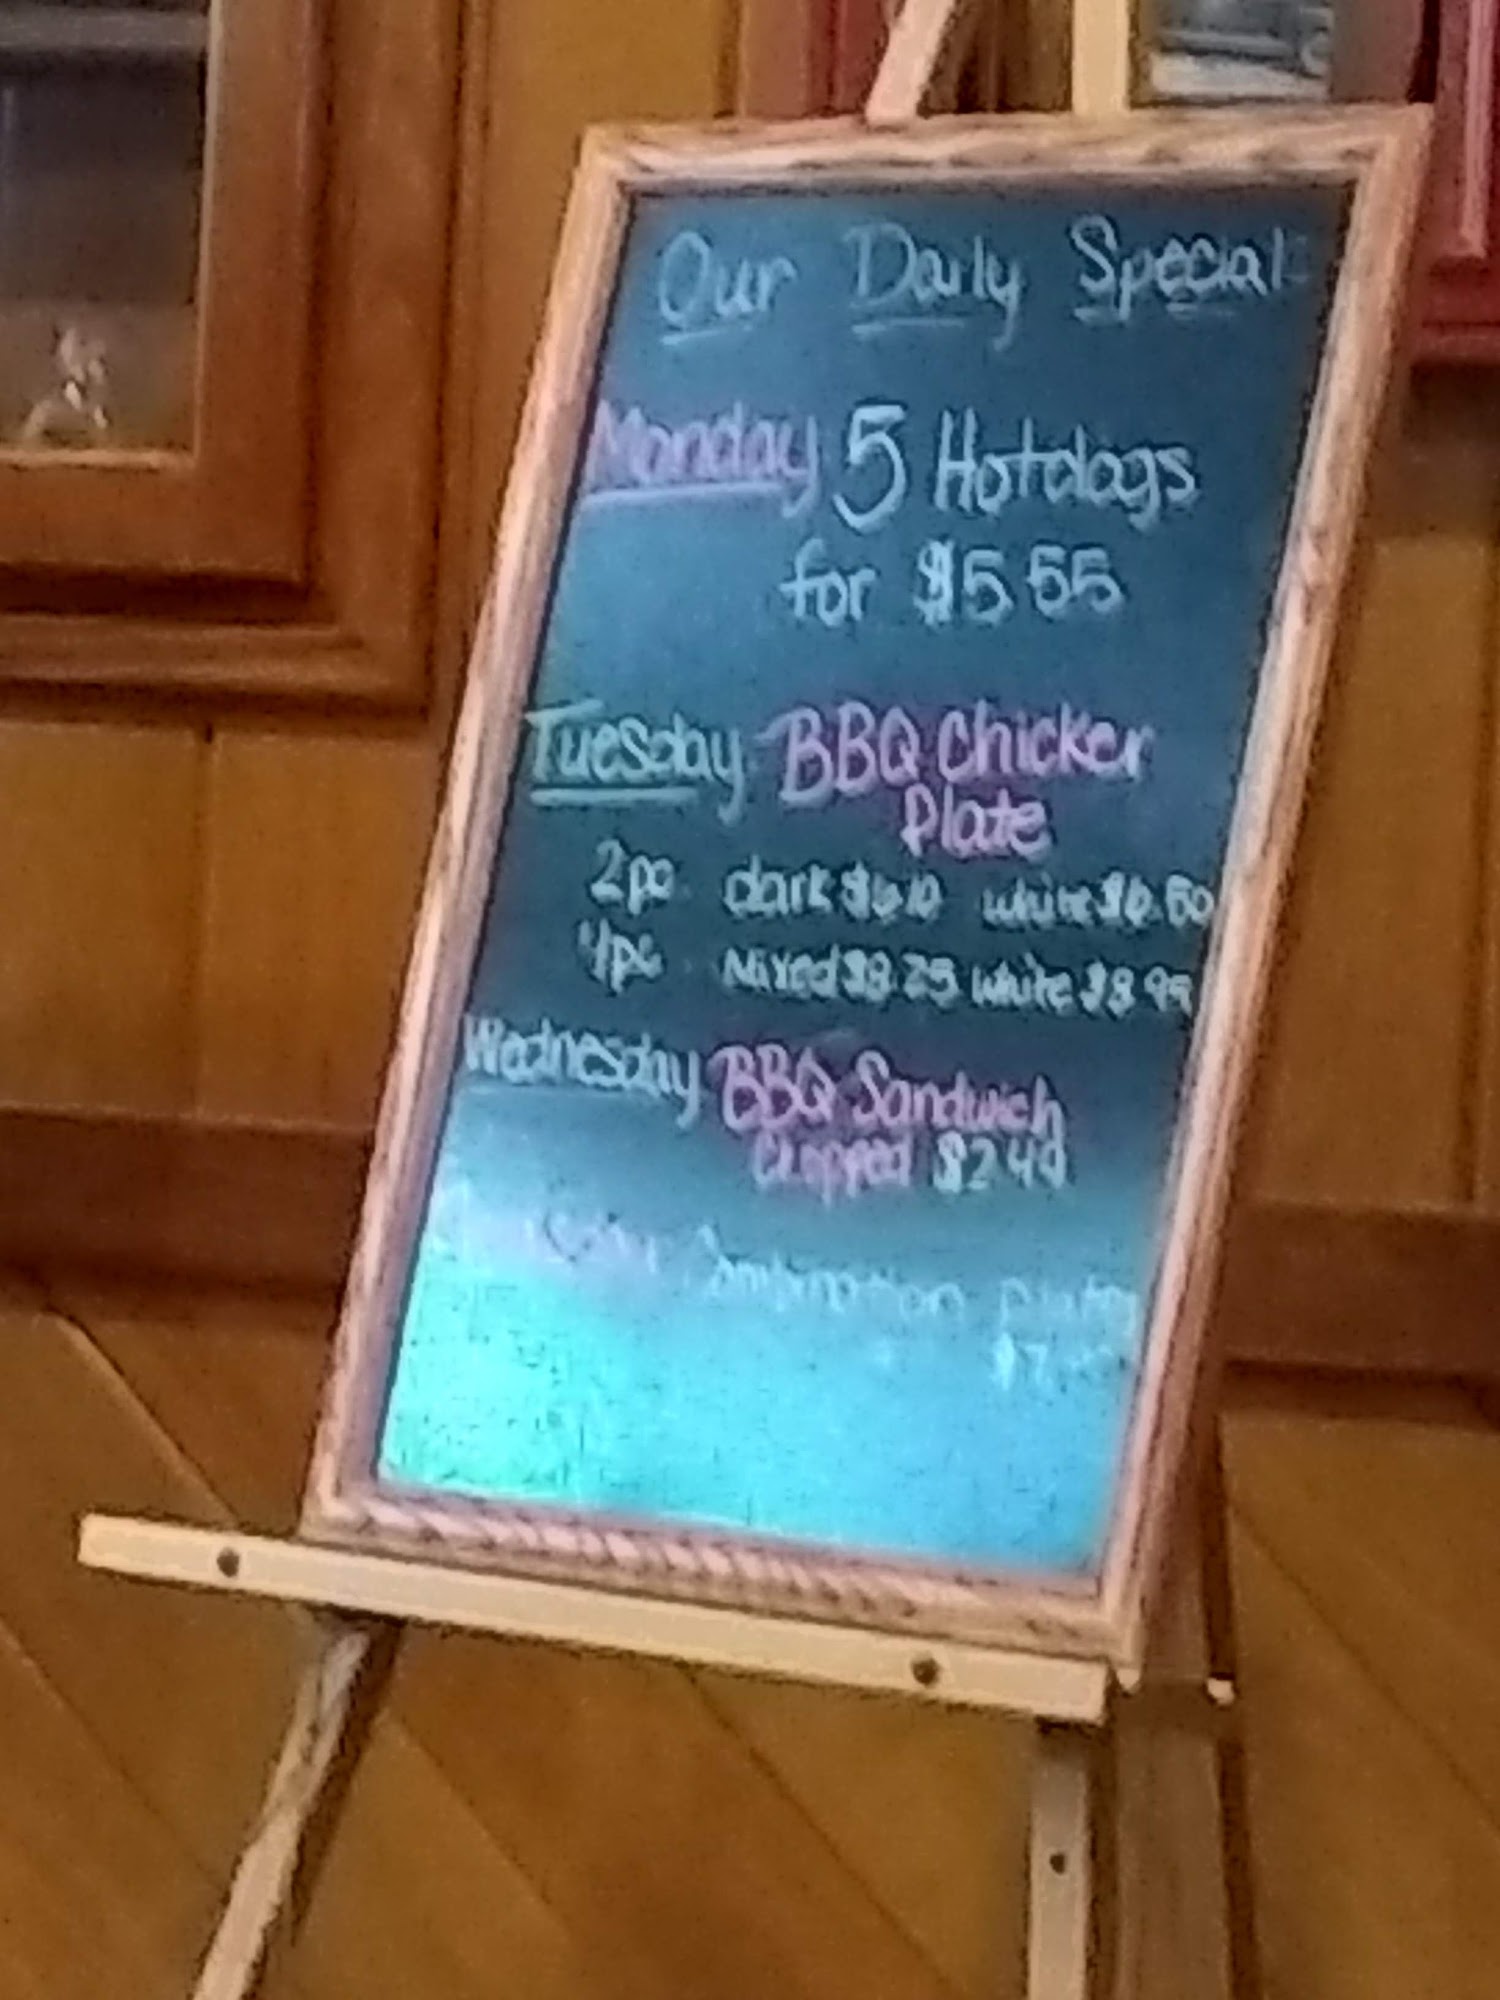 Our Daily Special
Monday 5 Hotdogs
for $5.55
Tuesday BBQ Chicken
Plate
2pc dark $6.10 white $6.50
4pc Mixed $8.25 white $8.95
Wednesday BBQ Sandwich
Chopped $2.49
Combination Plate